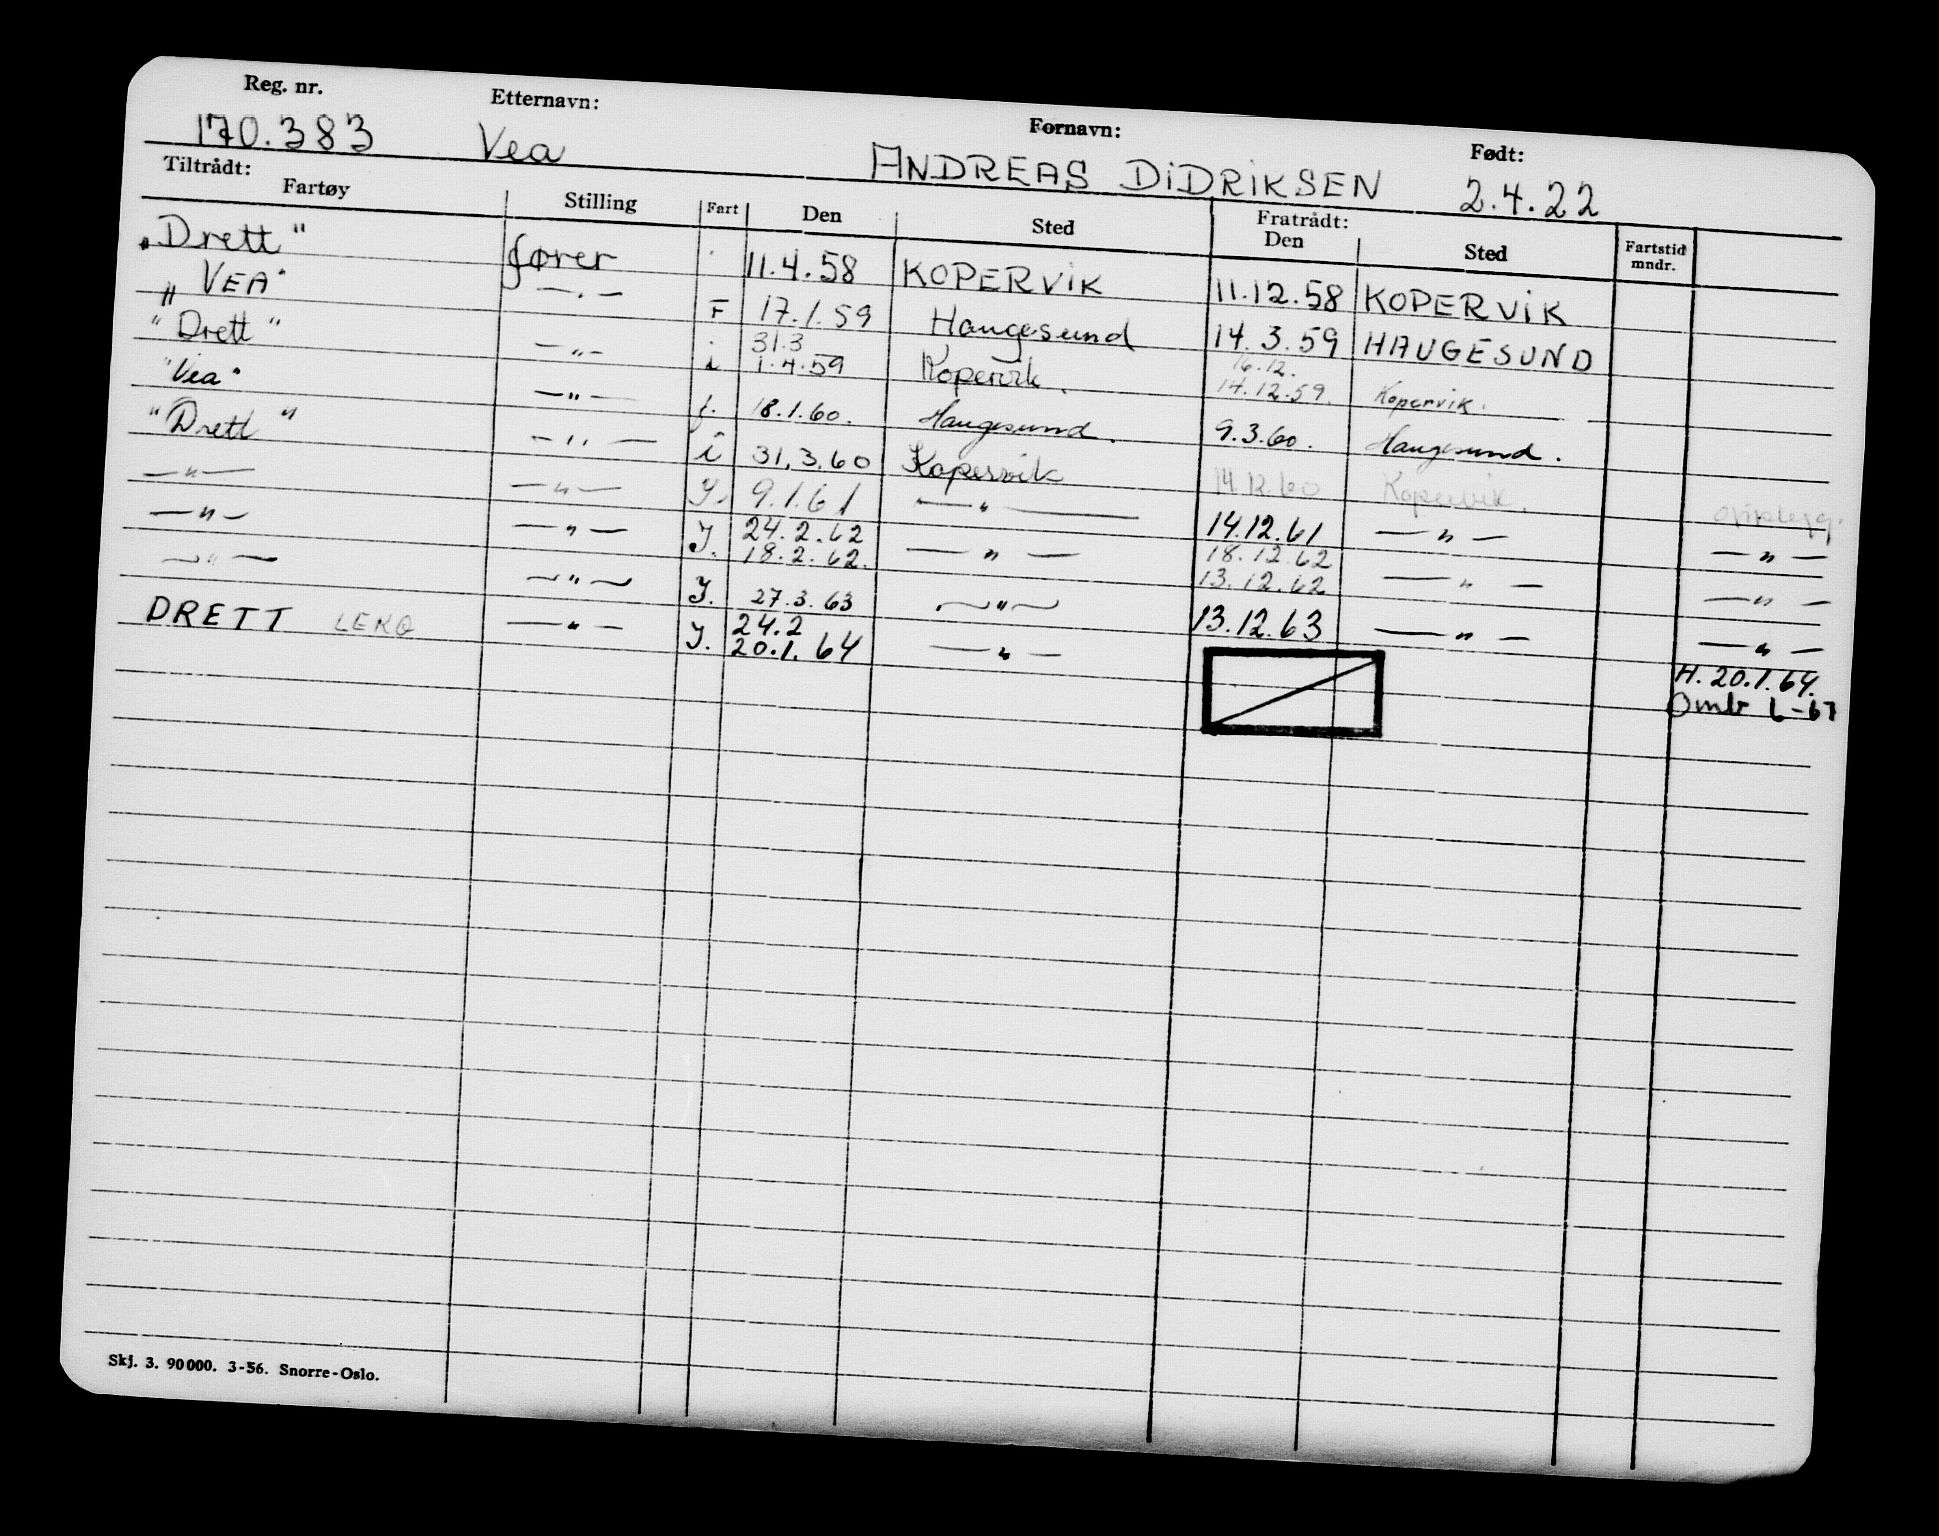 Reg. nr. Etternavn: Fornavn: Født:
170.383 Vea ANDREAS DiDRiKSEN 2.4.22
Tiltrådt: Fratrådt:
Fartøy Stilling Fart Den Sted Den Sted Fartstid mndr.
"Drett" fører 11.4.58 KOPERViK 11.12.58 KOPERViK
" VEA" — " — F 17.1.59 Haugesund 14.3.59 HAUGESUND
31.3 16.12.
"Drett" — " — i 1.4.59 Kopervik. 14.12.59. Kopervik.
"Vea" — " — f. 18.1.60. Haugesund. 9.3.60. Haugesund.
"Drett" — " — i 31.3.60 Kopervik 14.12.60 Kopervik.
— " — — " — J. 9.1.61 — " — 14.12.61 — " — — " —
24.2.62 18.12.62
— " — — " — J. 18.2.62. — " — 13.12.62 — " — — " —
— " — — " — J. 27.3.63 — " — 13.12.63 — " — — " —
24.2
DRETT LEKQ — " — J. 20.1.64 — " — H. 20.1.64.
Omb 6-67
Skj. 3. 90000. 3-56. Snorre-Oslo.